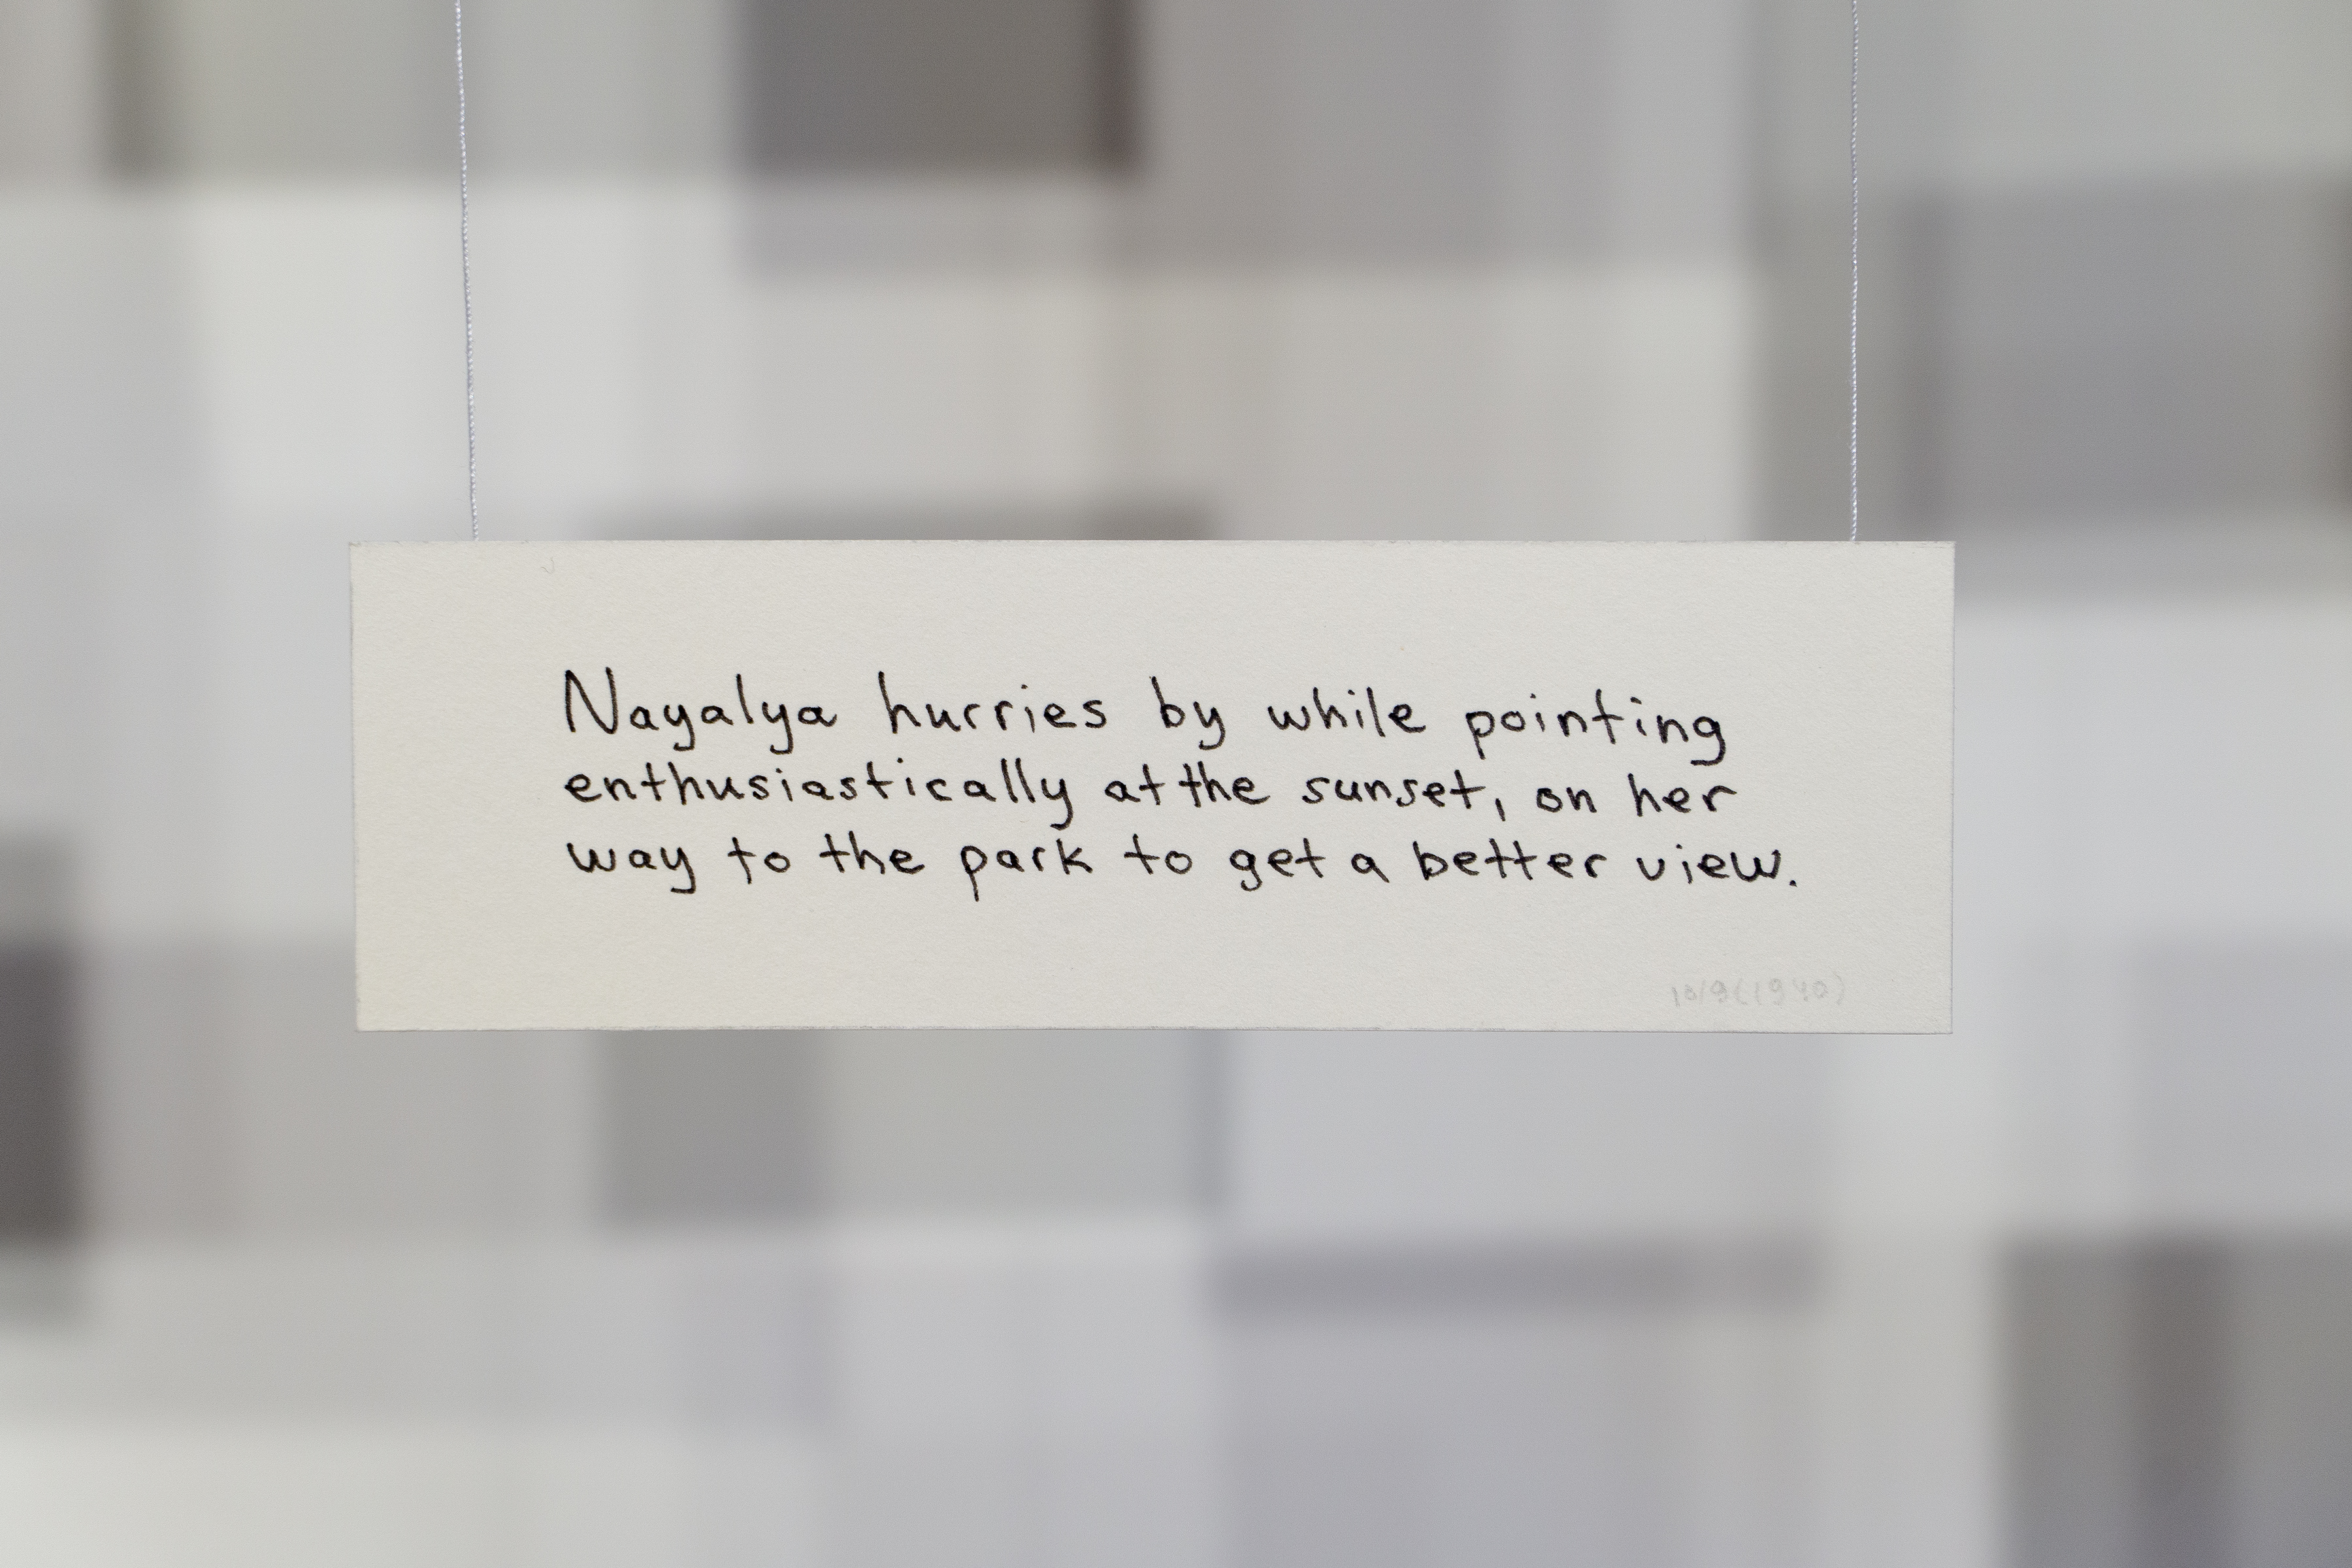 Nayalya hurries by while pointing
enthusiastically at the sunset, on her
way to the park to get a better view.
10/9(1940)